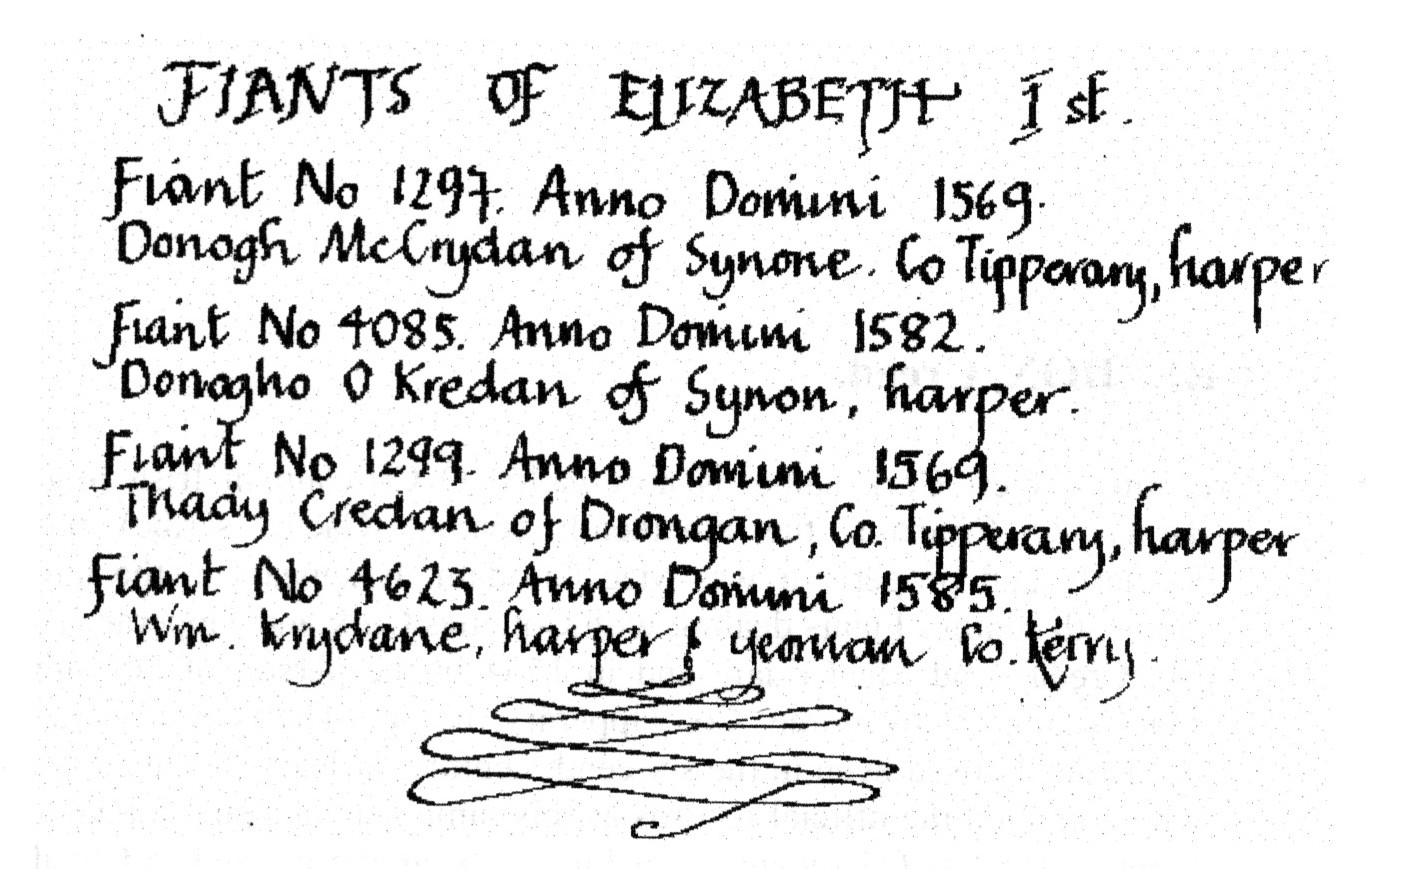 FIANTS OF ELIZABETH I st.
Fiant No 1297. Anno Domini 1569.
Donogh McCrydan of Synone. Co Tipperary, harper
Fiant No 4085. Anno Domini 1582.
Donogho O Kredan of Synon, harper.
Fiant No 1299. Anno Domini 1569.
Thady Credan of Drongan, Co. Tipperary, harper
Fiant No 4623. Anno Domini 1585.
Wm. Krydane, harper & yeoman Co. Kerry.